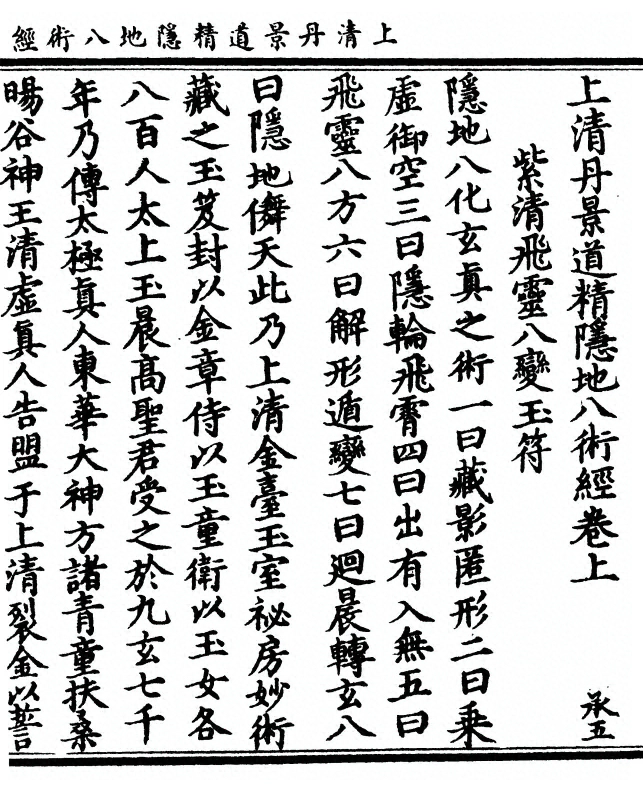 上清丹景道精隱地八術經
上清丹景道精隱地八術經卷上
承五
紫清飛靈八變玉符
隱地八化玄眞之術一曰藏影匿形二曰乘
虛御空三曰隱輪飛霄四曰出有入無五曰
飛靈八方六曰解形遁變七曰迴晨轉玄八
曰隱地儛天此乃上清金臺玉室祕房妙術
藏之玉笈封以金章侍以玉童衛以玉女各
八百人太上玉晨高聖君受之於九玄七千
年乃傳太極眞人東華大神方諸青童扶桑
暘谷神王清虛眞人告盟于上清裂金以誓